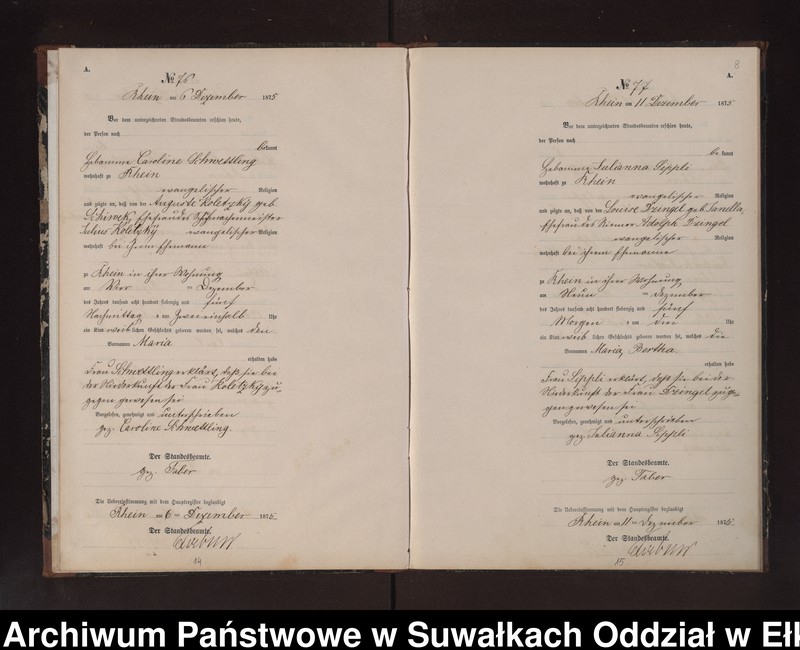 A.
№ 76
Rhein am 6 Dezember 1875
Vor dem unterzeichneten Standesbeamten erschien heute,
der Person nach
bekannt
Hebamme Caroline Schwestling
wohnhaft zu Rhein
evangelischer Religion
und zeigte an, daß von der Auguste Koletzky geb.
Ehefrau des
Julius Koletzky evangelischer Religion
wohnhaft bei ihrem Ehemann
zu Rhein in ihrer Wohnung
am Vier ten Dezember
des Jahres tausend acht hundert siebenzig und fünf
Nachmittag s um Zwei einhalb Uhr
ein Kind weiblichen Geschlechts geboren worden sei, welches den
Vornamen Maria
erhalten habe
Frau Schwestling erklärt, daß sie bei
der Niederkunft der Frau Koletzky zu-
gegen gewesen sei
Vorgelesen, genehmigt und unterschrieben
gez. Caroline Schwestling.
Der Standesbeamte.
gez. Faber
Die Uebereinstimmung mit dem Hauptregister beglaubigt
Rhein am 6 ten Dezember 1875
Der Standesbeamte.
14
8
A.
№ 77
Rhein am 11 Dezember 1875
Vor dem unterzeichneten Standesbeamten erschien heute,
der Person nach
be kannt
Hebamme Julianna Seppli
wohnhaft zu Rhein
evangelischer Religion
und zeigte an, daß von der Louise Dzingel geb. Sanella,
Ehefrau des Adolph Dzingel
evangelischer Religion
wohnhaft bei ihrem Ehemanne
zu Rhein in ihrer Wohnung
am Neun ten Dezember
des Jahres tausend acht hundert siebenzig und fünf
Morgen s um drei Uhr
ein Kind weiblichen Geschlechts geboren worden sei, welches die
Vornamen Maria, Bertha
erhalten habe
Frau Seppli erklärt, daß sie bei der
Niederkunft der Frau Dzingel zuge-
gen gewesen sei
Vorgelesen, genehmigt und unterschrieben
gez. Julianna Seppli
Der Standesbeamte.
gez. Faber
Die Uebereinstimmung mit dem Hauptregister beglaubigt
Rhein am 11 ten Dezember 1875
Der Standesbeamte.
15
Archiwum Państwowe w Suwałkach Oddział w Ełk